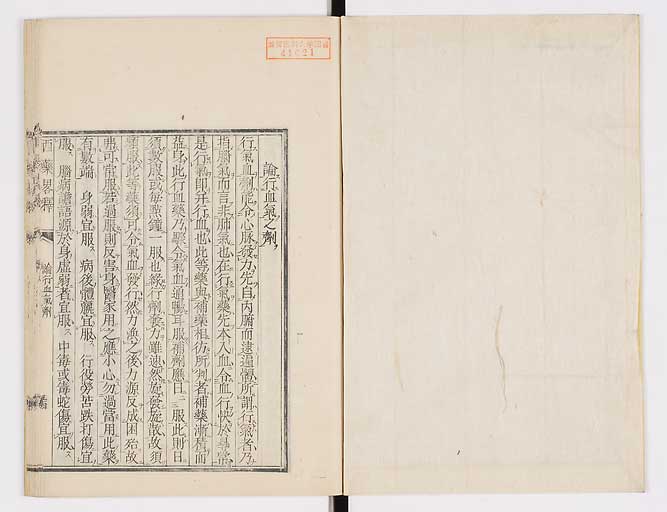 論行血氣之劑
行氣血劑能令心脉發力先自內臓而達遍體所謂行氣者乃
指臓氣而言非肺氣也在行氣藥先本入血令血行快於尋常
是行氣即并行血也此等藥與補藥相彷所判者補藥漸而
益身此行血藥乃驟令氣血通暢耳服補劑應日一服此則日
須數服或每點鐘一服也緣行劑發力雖速然旋發旋散故須
頻服此等藥須可令氣血發行然力渙之後力源反成困殆故
弗可常服若過服則反害身醫家用之應小心勿過當用此藥
有數端 身弱宜服 病後體羸宜服 行役勞苦跌打傷宜
服 腦病譫語源於身虛弱者宜服 中毒或毒蛇傷宜服
西藥畧釋 論行血氣劑
41621